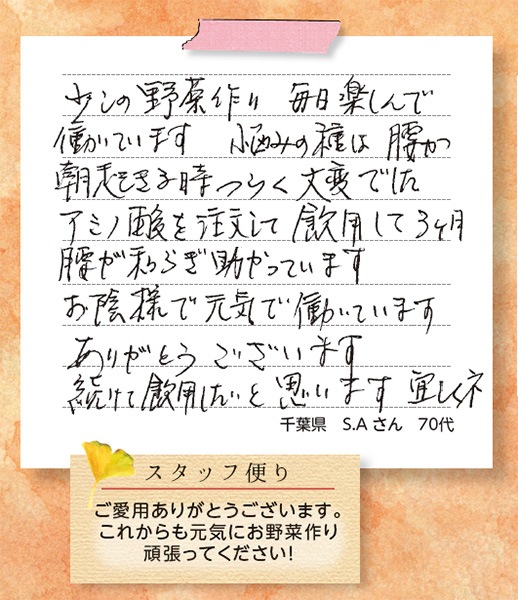 少しの野菜作り 毎日楽しんで
働いています 悩みの種は 腰が
朝起きる時つらく大変でした
アミノ酸を注文して飲用して3ヶ月
腰が和らぎ助かっています
お陰様で元気で働いています
ありがとうございます
続けて飲用したいと思います 宜しくネ
千葉県 S.Aさん 70代
スタッフ便り
ご愛用ありがとうございます。
これからも元気にお野菜作り
頑張ってください!